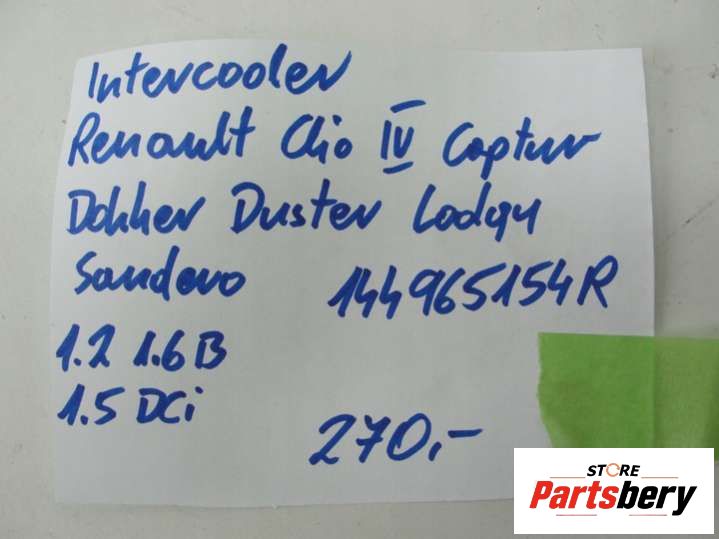 Intercooler
Renault Clio IV Captur
Dokker Duster Lodgy
Sandero 144965154R
1.2 1.6 B
1.5 DCi
270,-
STORE
Partsbery